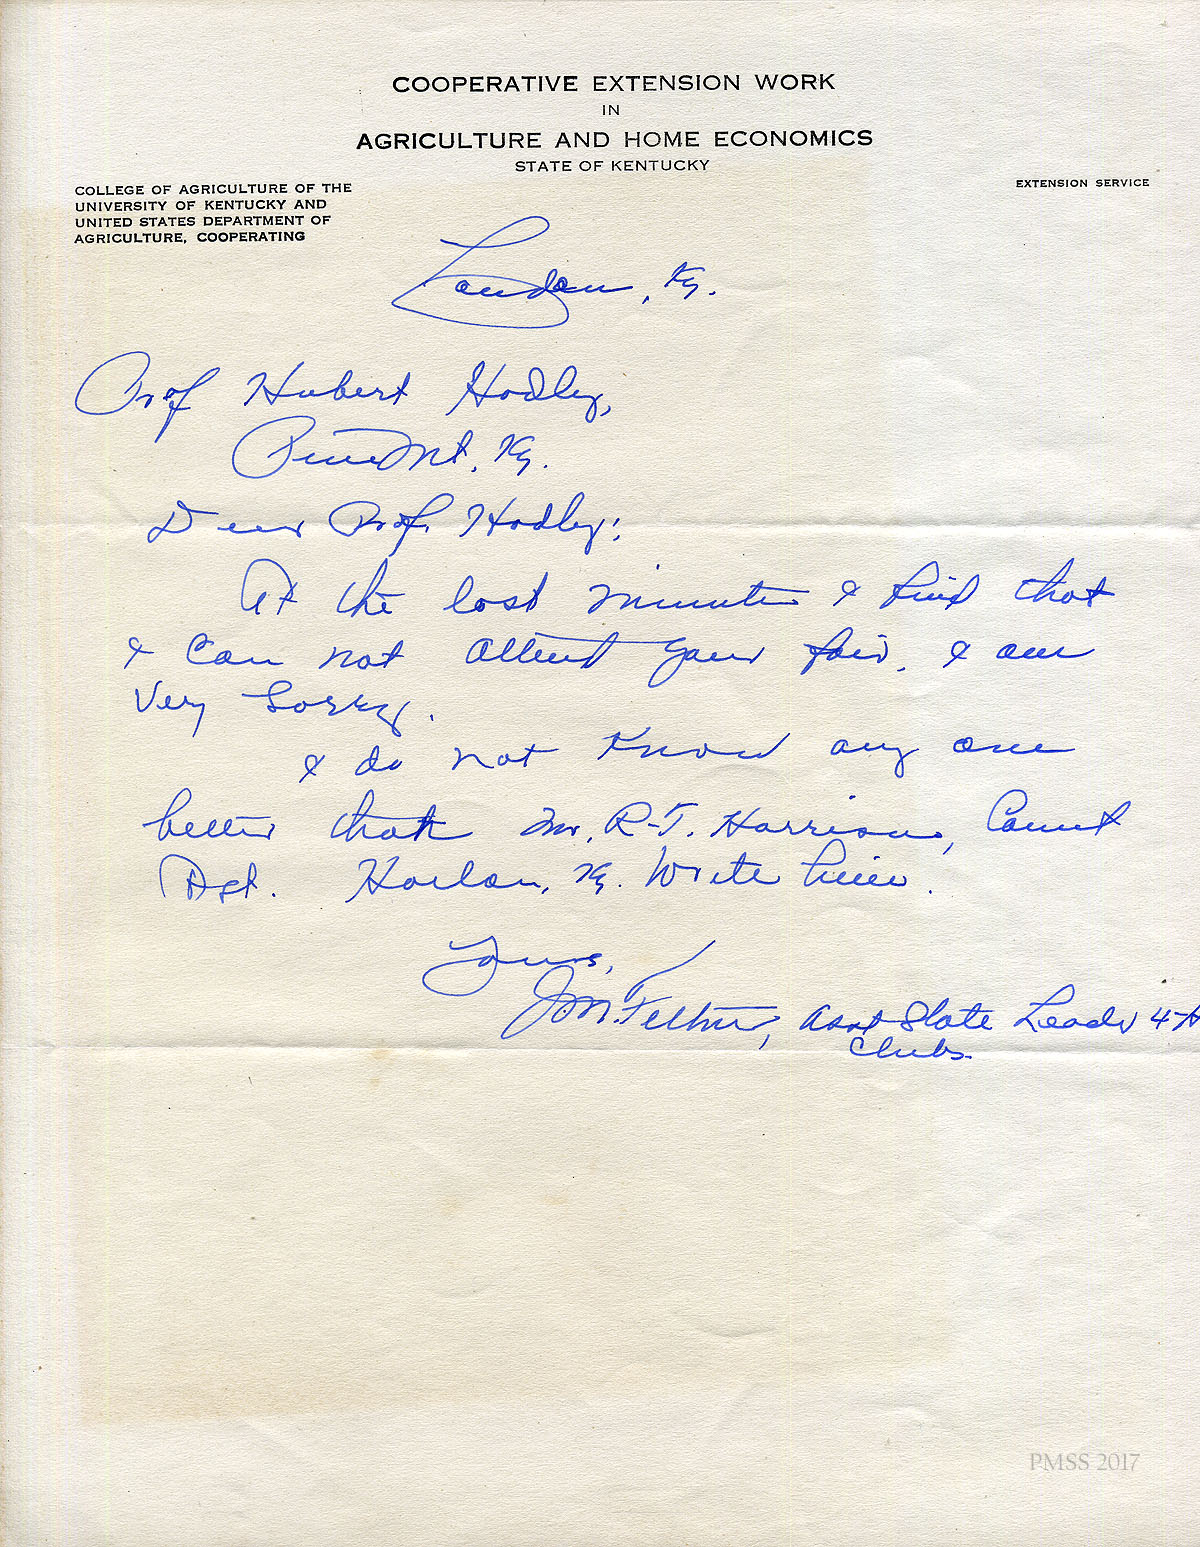 COOPERATIVE EXTENSION WORK
IN
AGRICULTURE AND HOME ECONOMICS
STATE OF KENTUCKY
COLLEGE OF AGRICULTURE OF THE
UNIVERSITY OF KENTUCKY AND
UNITED STATES DEPARTMENT OF
AGRICULTURE, COOPERATING
EXTENSION SERVICE
London, Ky.
Prof Hubert Hadley,
Pine Mt, Ky.
Dear Prof. Hadley;
At the last minute I find that
I can not attend your fair. I am
very sorry.
I do not know any one
better that Mr. R-T. Harrison, Count
Agt. Harlan, Ky. Write him.
Yours,
J M Feltner, Asst State Leader 4-H
Clubs.
PMSS 2017